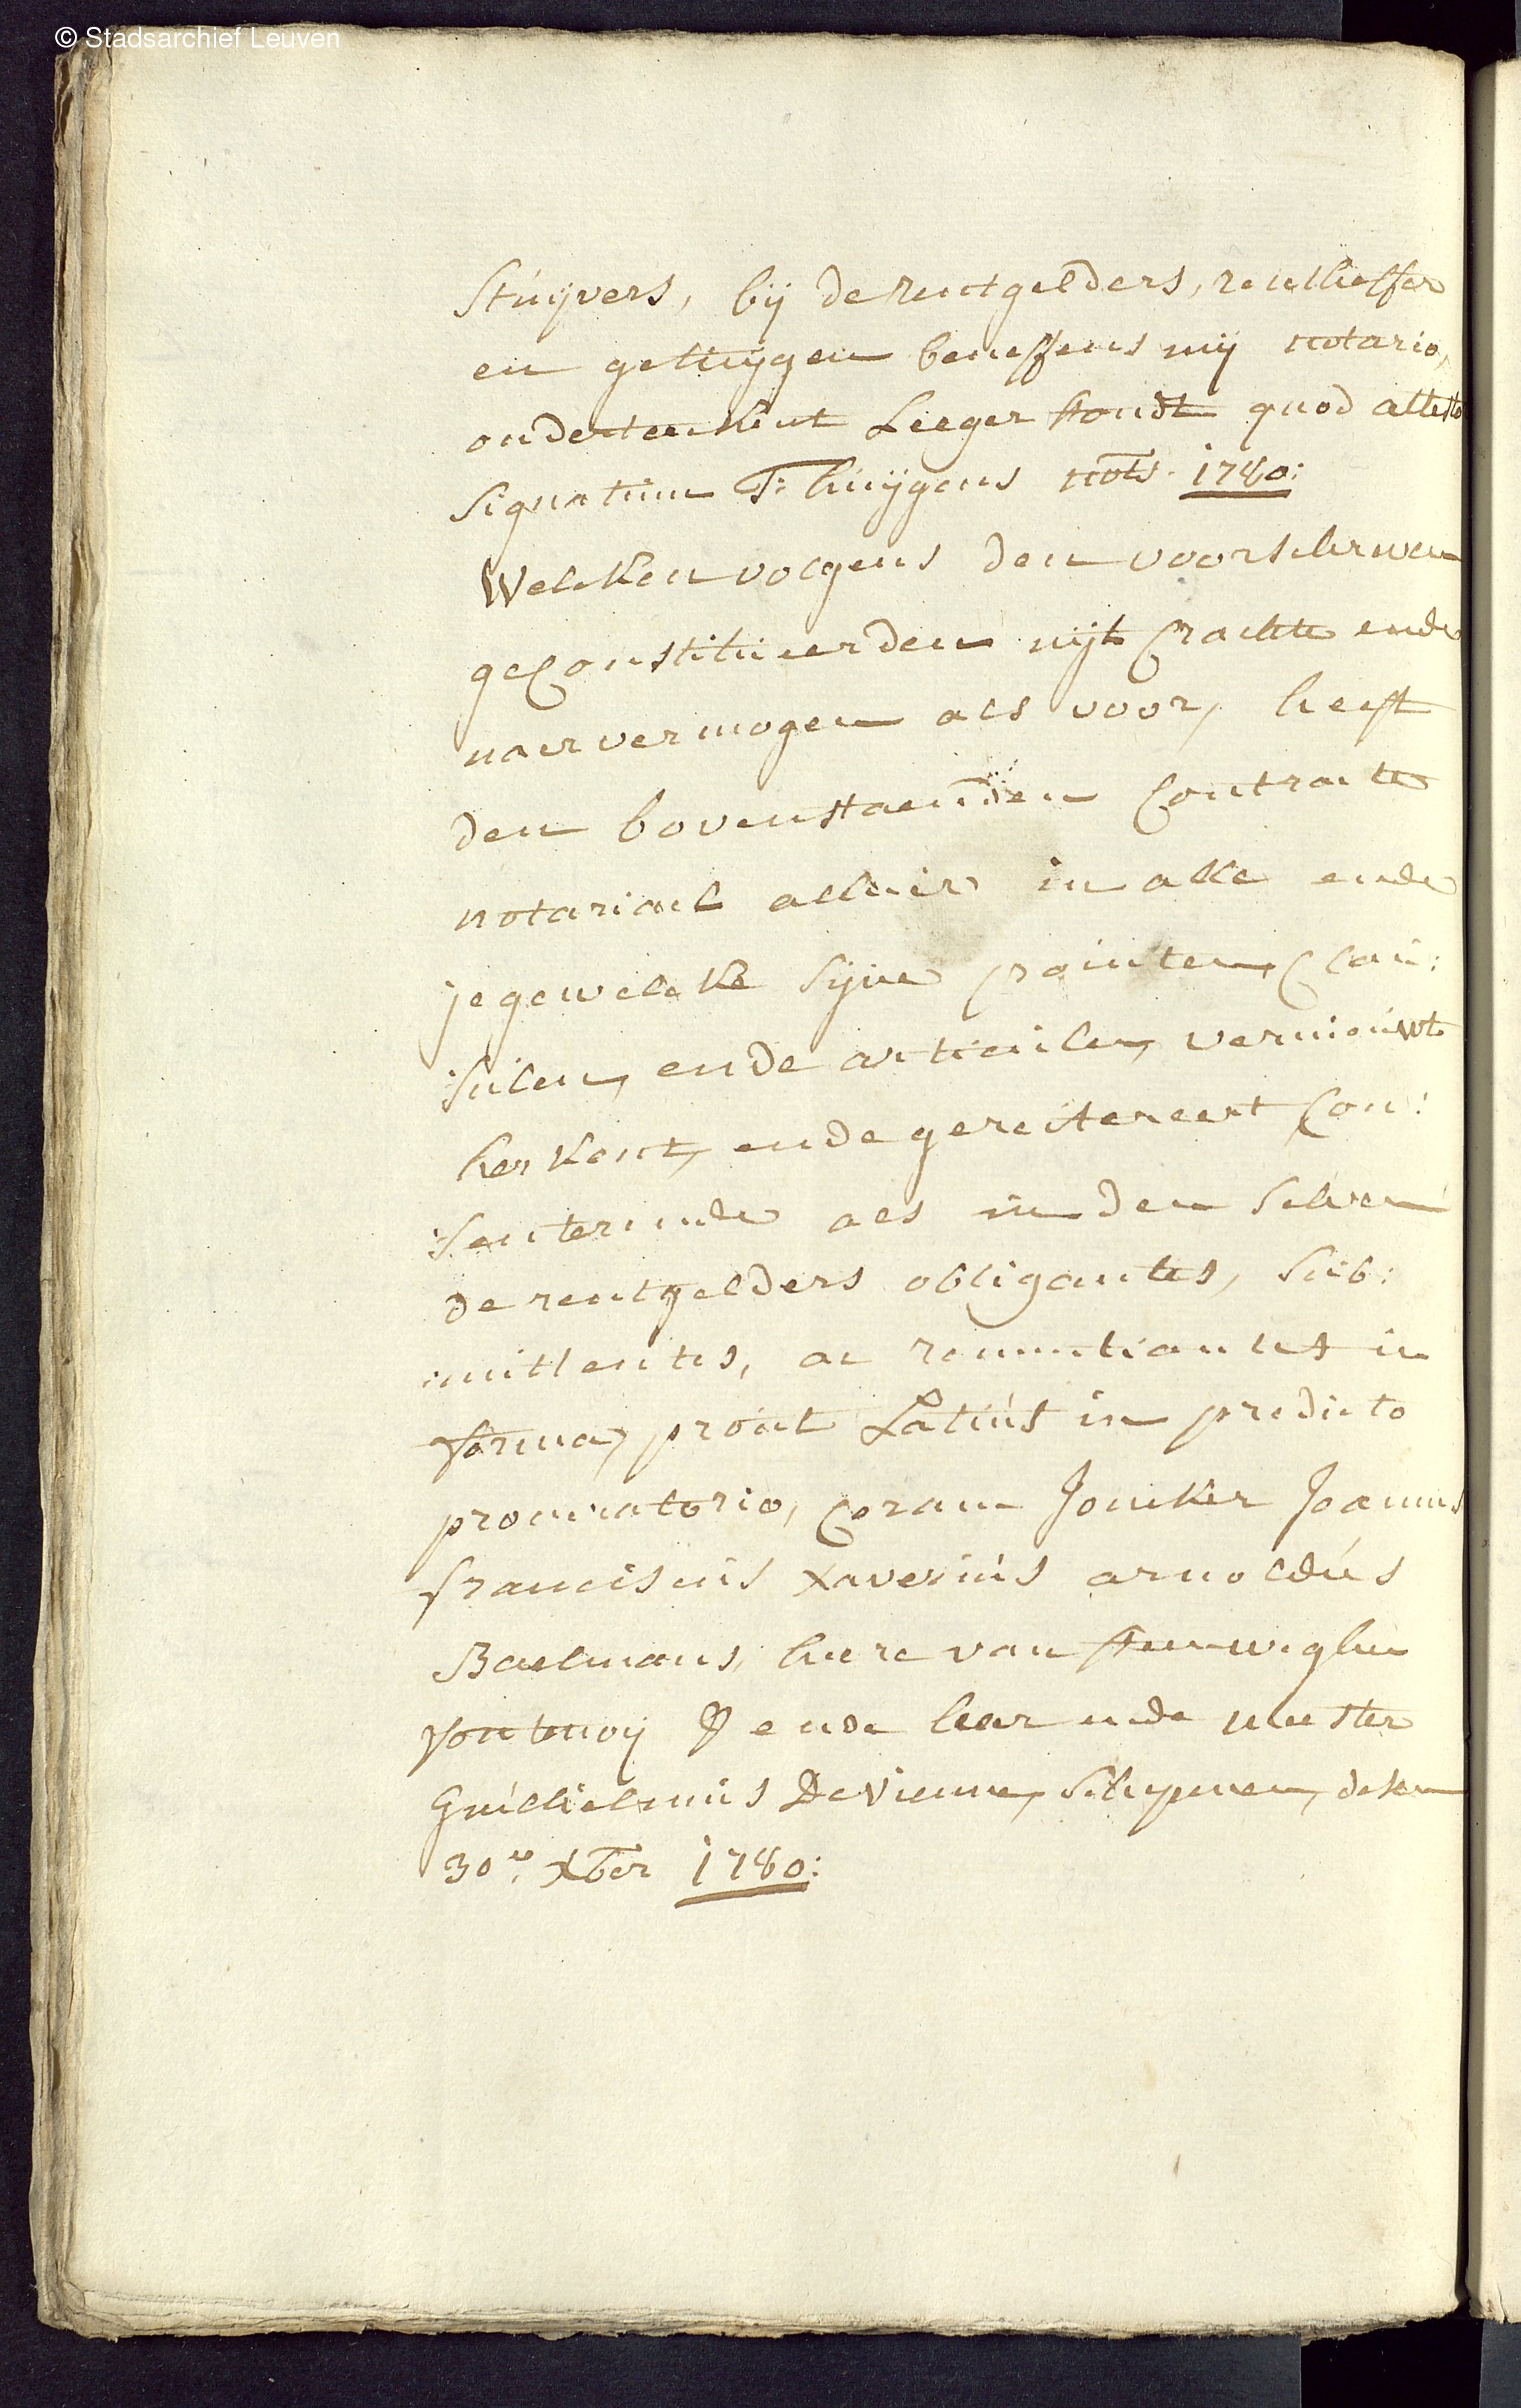 © Stadsarchief Leuven
Stuijvers, bij de rentgelders, rentheffer
en getuijgen beneffens mij notario,
onderteekent Leeger stondt quod attesto
Signatum F: Huijgens nots. 1780:
Welcken volgens den voorschreven
geconstitueerden uijt crachte ende
naer vermogen als voor, heeft
den bovenstaenden Contracte
notariael alhier in alle ende
jegewelcke sijne pointen, Clau:
:sulen, ende articulen, vernieuwt
herkent, ende gereitereert Con:
:senterende als in den selven
de rentgelders obligantes, sub:
:mittentes, ac renuntiantes in
forma, proút Latiús in predicto
procuratorio, Coram Joncker Joannes
franciscus Xaverius arnoldús
Baelmans, heere van Steenweghen
fontenoij &c ende heer ende meester
Gúilielmús De Vienne, Schepenen, desen
30en. Xber 1780: